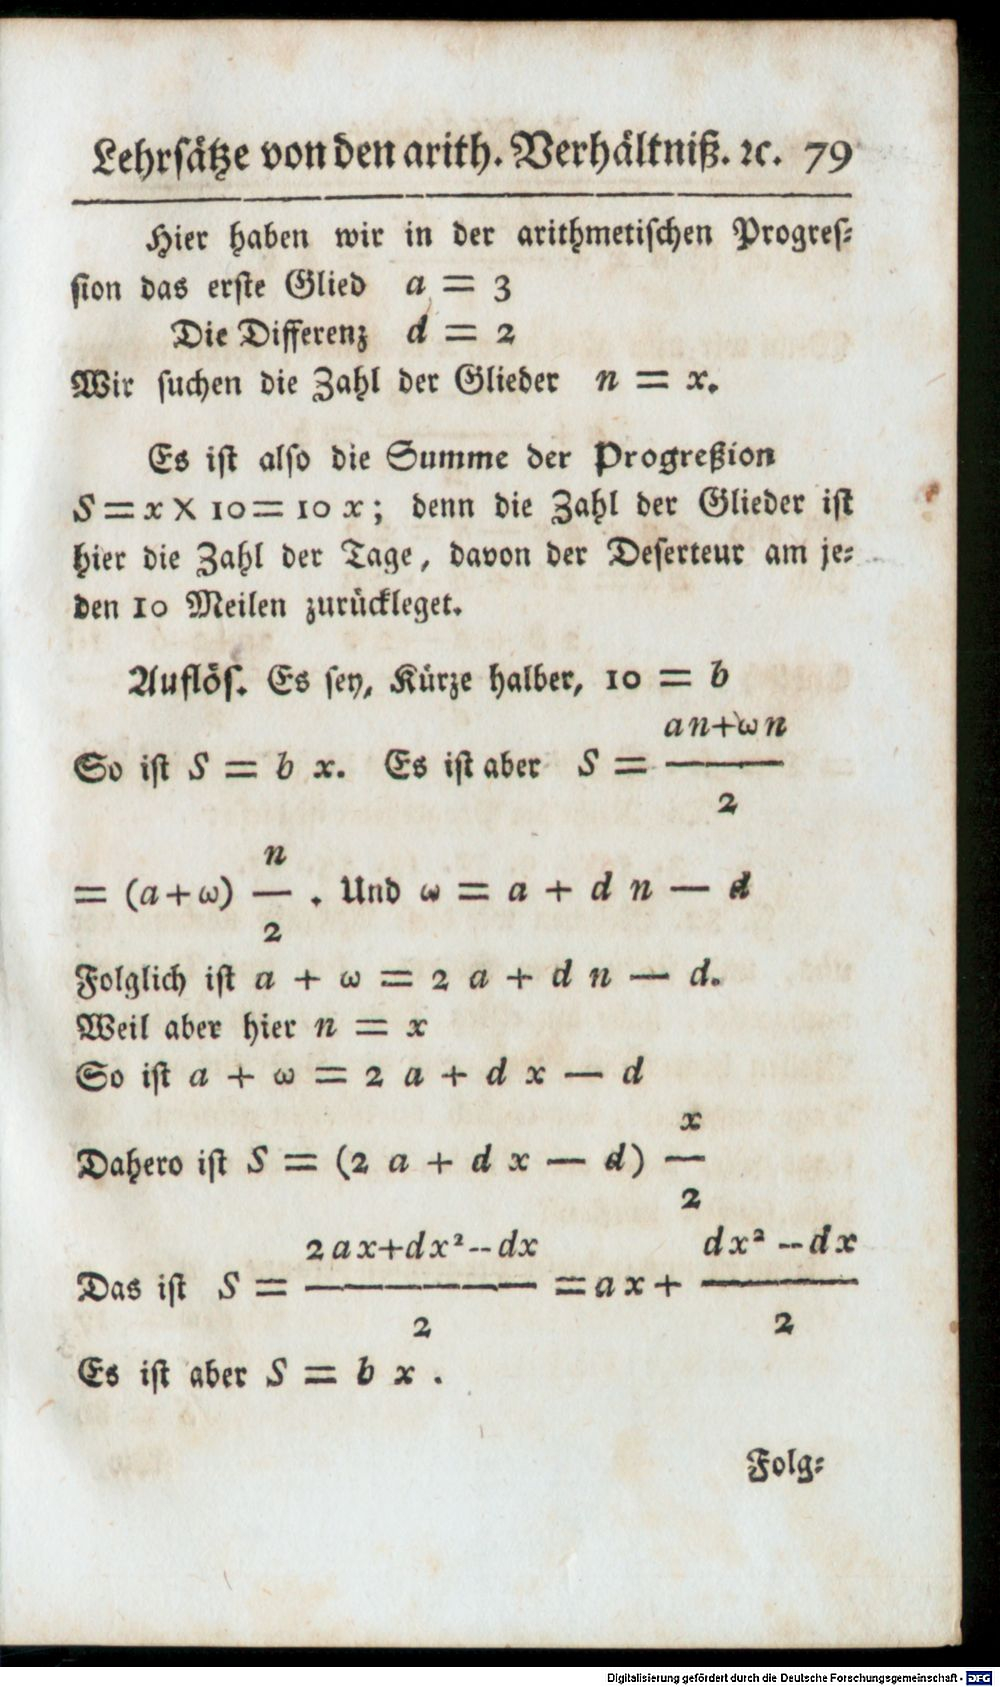 Lehrsätze von den arith. Verhältniß. ꝛc. 79
Hier haben wir in der arithmetischen Progres-
sion das erste Glied a = 3
Die Differenz d = 2
Wir suchen die Zahl der Glieder n = x.
Es ist also die Summe der Progreßion
S = x X 10 = 10 x; denn die Zahl der Glieder ist
hier die Zahl der Tage, davon der Deserteur am je-
den 10 Meilen zurückleget.
Auflös. Es sey, Kürze halber, 10 = b
So ist S = b x. Es ist aber S = (an+ωn)/2
= (a+ω) n/2 . Und ω = a + d n — d
Folglich ist a + ω = 2 a + d n — d.
Weil aber hier n = x
So ist a + ω = 2 a + d x — d
Dahero ist S = (2 a + d x — d) x/2
Das ist S = (2ax+dx²--dx)/2 = ax + (dx²--dx)/2
Es ist aber S = b x .
Folg-
Digitalisierung gefördert durch die Deutsche Forschungsgemeinschaft - DFG